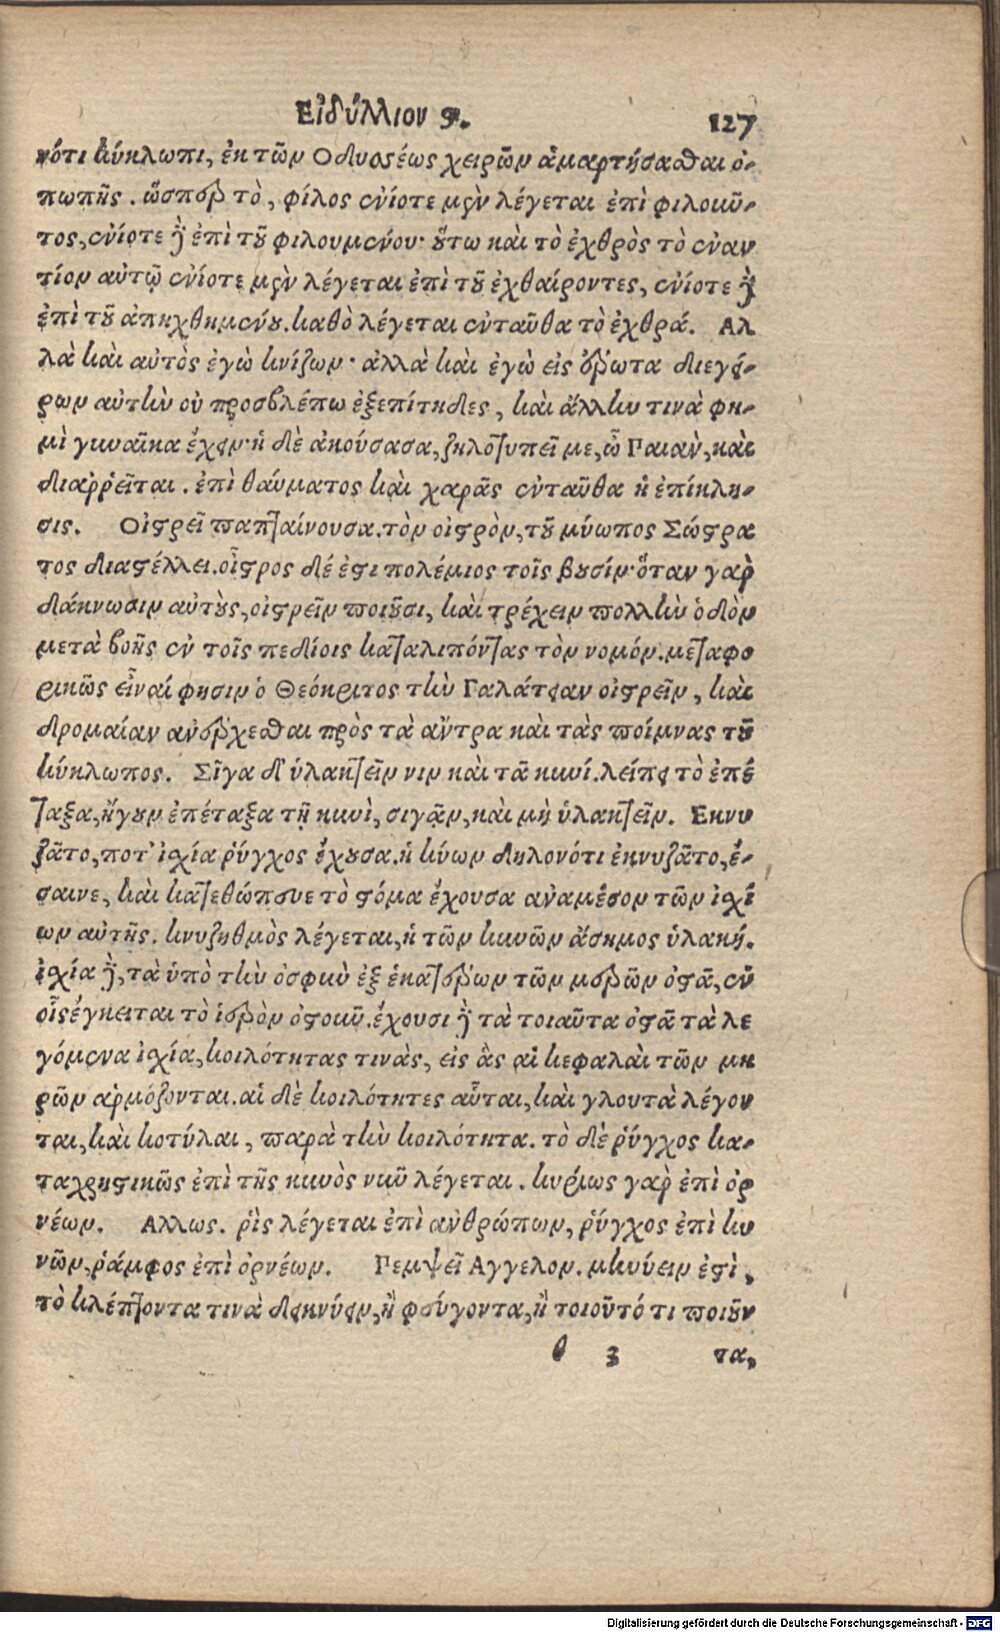 Εἰδύλλιον ϛ. 127
νότι κύκλωπι, ἐκ τῶν Οδυσσέως χειρῶν ἁμαρτήσασθαι ὀ-
πωπῆς. ὥσπερ τὸ, φίλος ἐνίοτε μὲν λέγεται ἐπὶ φιλοῦν-
τος, ἐνίοτε δὲ ἐπὶ τοῦ φιλουμένου· οὕτω καὶ τὸ ἐχθρὸς τὸ ἐναν
τίον αὐτῷ ἐνίοτε μὲν λέγεται ἐπὶ τοῦ ἐχθαίροντες, ἐνίοτε δὲ
ἐπὶ τοῦ ἀπηχθημένου. καθὸ λέγεται ἐνταῦθα τὸ ἐχθρά. Αλ
λὰ καὶ αὐτὸς ἐγὼ κνίζων· ἀλλὰ καὶ ἐγὼ εἰς ἔρωτα διεγεί-
ρων αὐτὴν οὐ προσβλέπω ἐξεπίτηδες, καὶ ἄλλην τινὰ φη-
μὶ γυναῖκα ἔχειν· ἡ δὲ ἀκούσασα, ζηλοτυπεῖ με, ὦ Παιὰν, καὶ
διαῤῥεῖται. ἐπὶ θαύματος καὶ χαρᾶς ἐνταῦθα ἡ ἐπίκλη-
σις. Οἰστρεῖ παπταίνουσα. τὸν οἶστρον, τοῦ μύωπος Σώστρα
τος διαστέλλει. οἶστρος δέ ἐστι πολέμιος τοῖς βουσίν· ὅταν γὰρ
δάκνωσιν αὐτοὺς, οἰστρεῖν ποιοῦσι, καὶ τρέχειν πολλὴν ὁδὸν
μετὰ βοῆς ἐν τοῖς πεδίοις καταλιπόντας τὸν νομόν. μεταφο
ρικῶς εἶναί φησιν ὁ Θεόκριτος τὴν Γαλάτειαν οἰστρεῖν, καὶ
δρομαίαν ἀνέρχεσθαι πρὸς τὰ ἄντρα καὶ τὰς ποίμνας τοῦ
κύκλωπος. Σῖγα δ' ὑλακτεῖν νιν καὶ τᾶ κυνί. λείπει τὸ ἐπέ
ταξα, ἤγουν ἐπέταξα τῇ κυνὶ, σιγᾷν, καὶ μὴ ὑλακτεῖν. Εκνυ
ζᾶτο, ποτ' ἰσχία ῥύγχος ἔχουσα. ἡ κύων δηλονότι ἐκνυζᾶτο, ἔ-
σαινε, καὶ κατεθώπευε τὸ στόμα ἔχουσα ἀναμέσον τῶν ἰσχί
ων αὐτῆς. κνυζηθμὸς λέγεται, ἡ τῶν κυνῶν ἄσημος ὑλακή.
ἰσχία δὲ, τὰ ὑπὸ τὴν ὀσφὺν ἐξ ἑκατέρων τῶν μερῶν ὀστᾶ, ἐν
οἷς ἔγκειται τὸ ἱερὸν ὀστοῦν. ἔχουσι δὲ τὰ τοιαῦτα ὀστᾶ τὰ λε
γόμενα ἰσχία, κοιλότητας τινὰς, εἰς ἃς αἱ κεφαλαὶ τῶν μη
ρῶν ἁρμόζονται. αἱ δὲ κοιλότητες αὗται, καὶ γλουτὰ λέγον
ται, καὶ κοτύλαι, παρὰ τὴν κοιλότητα. τὸ δὲ ῥύγχος κα-
ταχρηστικῶς ἐπὶ τῆς κυνὸς νῦν λέγεται. κυρίως γὰρ ἐπὶ ὀρ
νέων. Αλλως. ῥὶς λέγεται ἐπὶ ἀνθρώπων, ῥύγχος ἐπὶ κυ
νῶν, ῥάμφος ἐπὶ ὀρνέων. Πεμψεῖ Αγγελον. μηνύειν ἐστὶ,
τὸ κλέπτοντα τινὰ δεικνύειν, ἢ φεύγοντα, ἢ τοιοῦτό τι ποιοῦν
θ 3 τα,
Digitalisierung gefördert durch die Deutsche Forschungsgemeinschaft - DFG